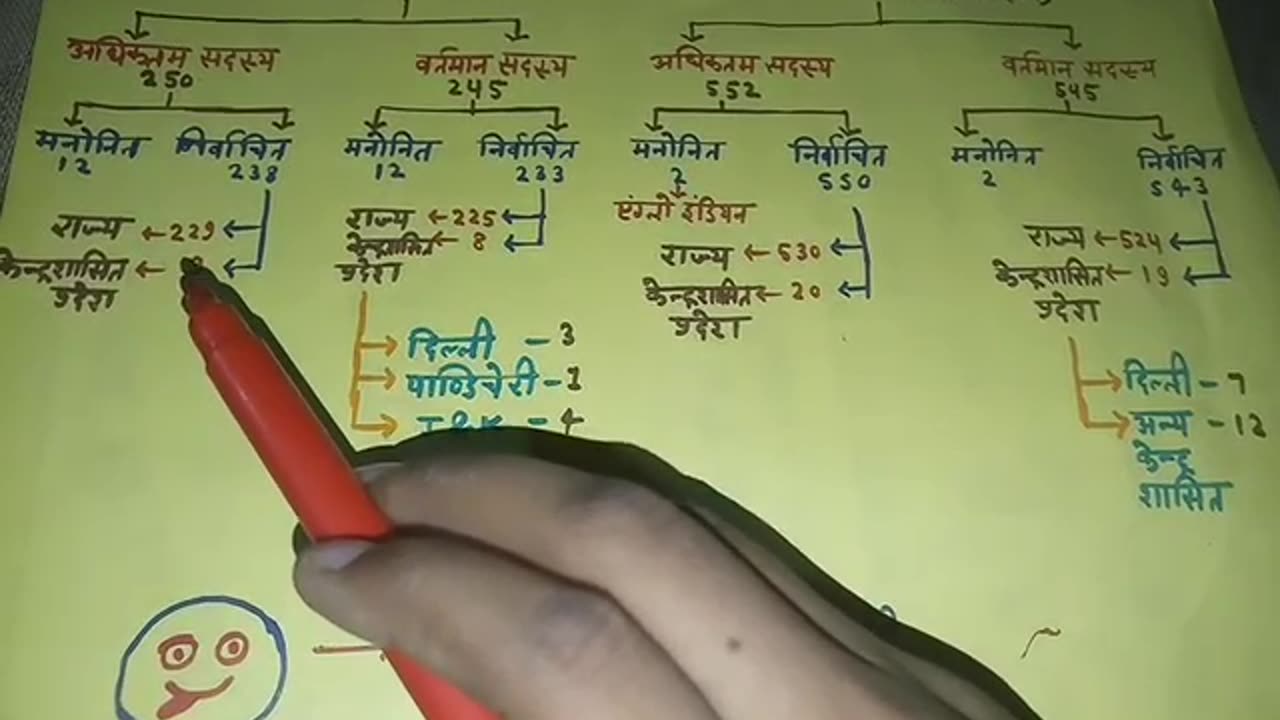 अधिकतम सदस्य
250
मनोनित
12
निर्वाचित
238
राज्य ←229
केन्द्रशासित ←
प्रदेश
वर्तमान सदस्य
245
मनोनित
12
निर्वाचित
233
राज्य ←225
केन्द्रशासित← 8
प्रदेश
दिल्ली - 3
पाण्डिचेरी-1
J&K - 4
अधिकतम सदस्य
552
मनोनित
2
एंग्लो इंडियन
निर्वाचित
550
राज्य ←530
केन्द्रशासित← 20
प्रदेश
वर्तमान सदस्य
545
मनोनित
2
निर्वाचित
543
राज्य ←524
केन्द्रशासित← 19
प्रदेश
दिल्ली - 7
अन्य - 12
केन्द्र
शासित